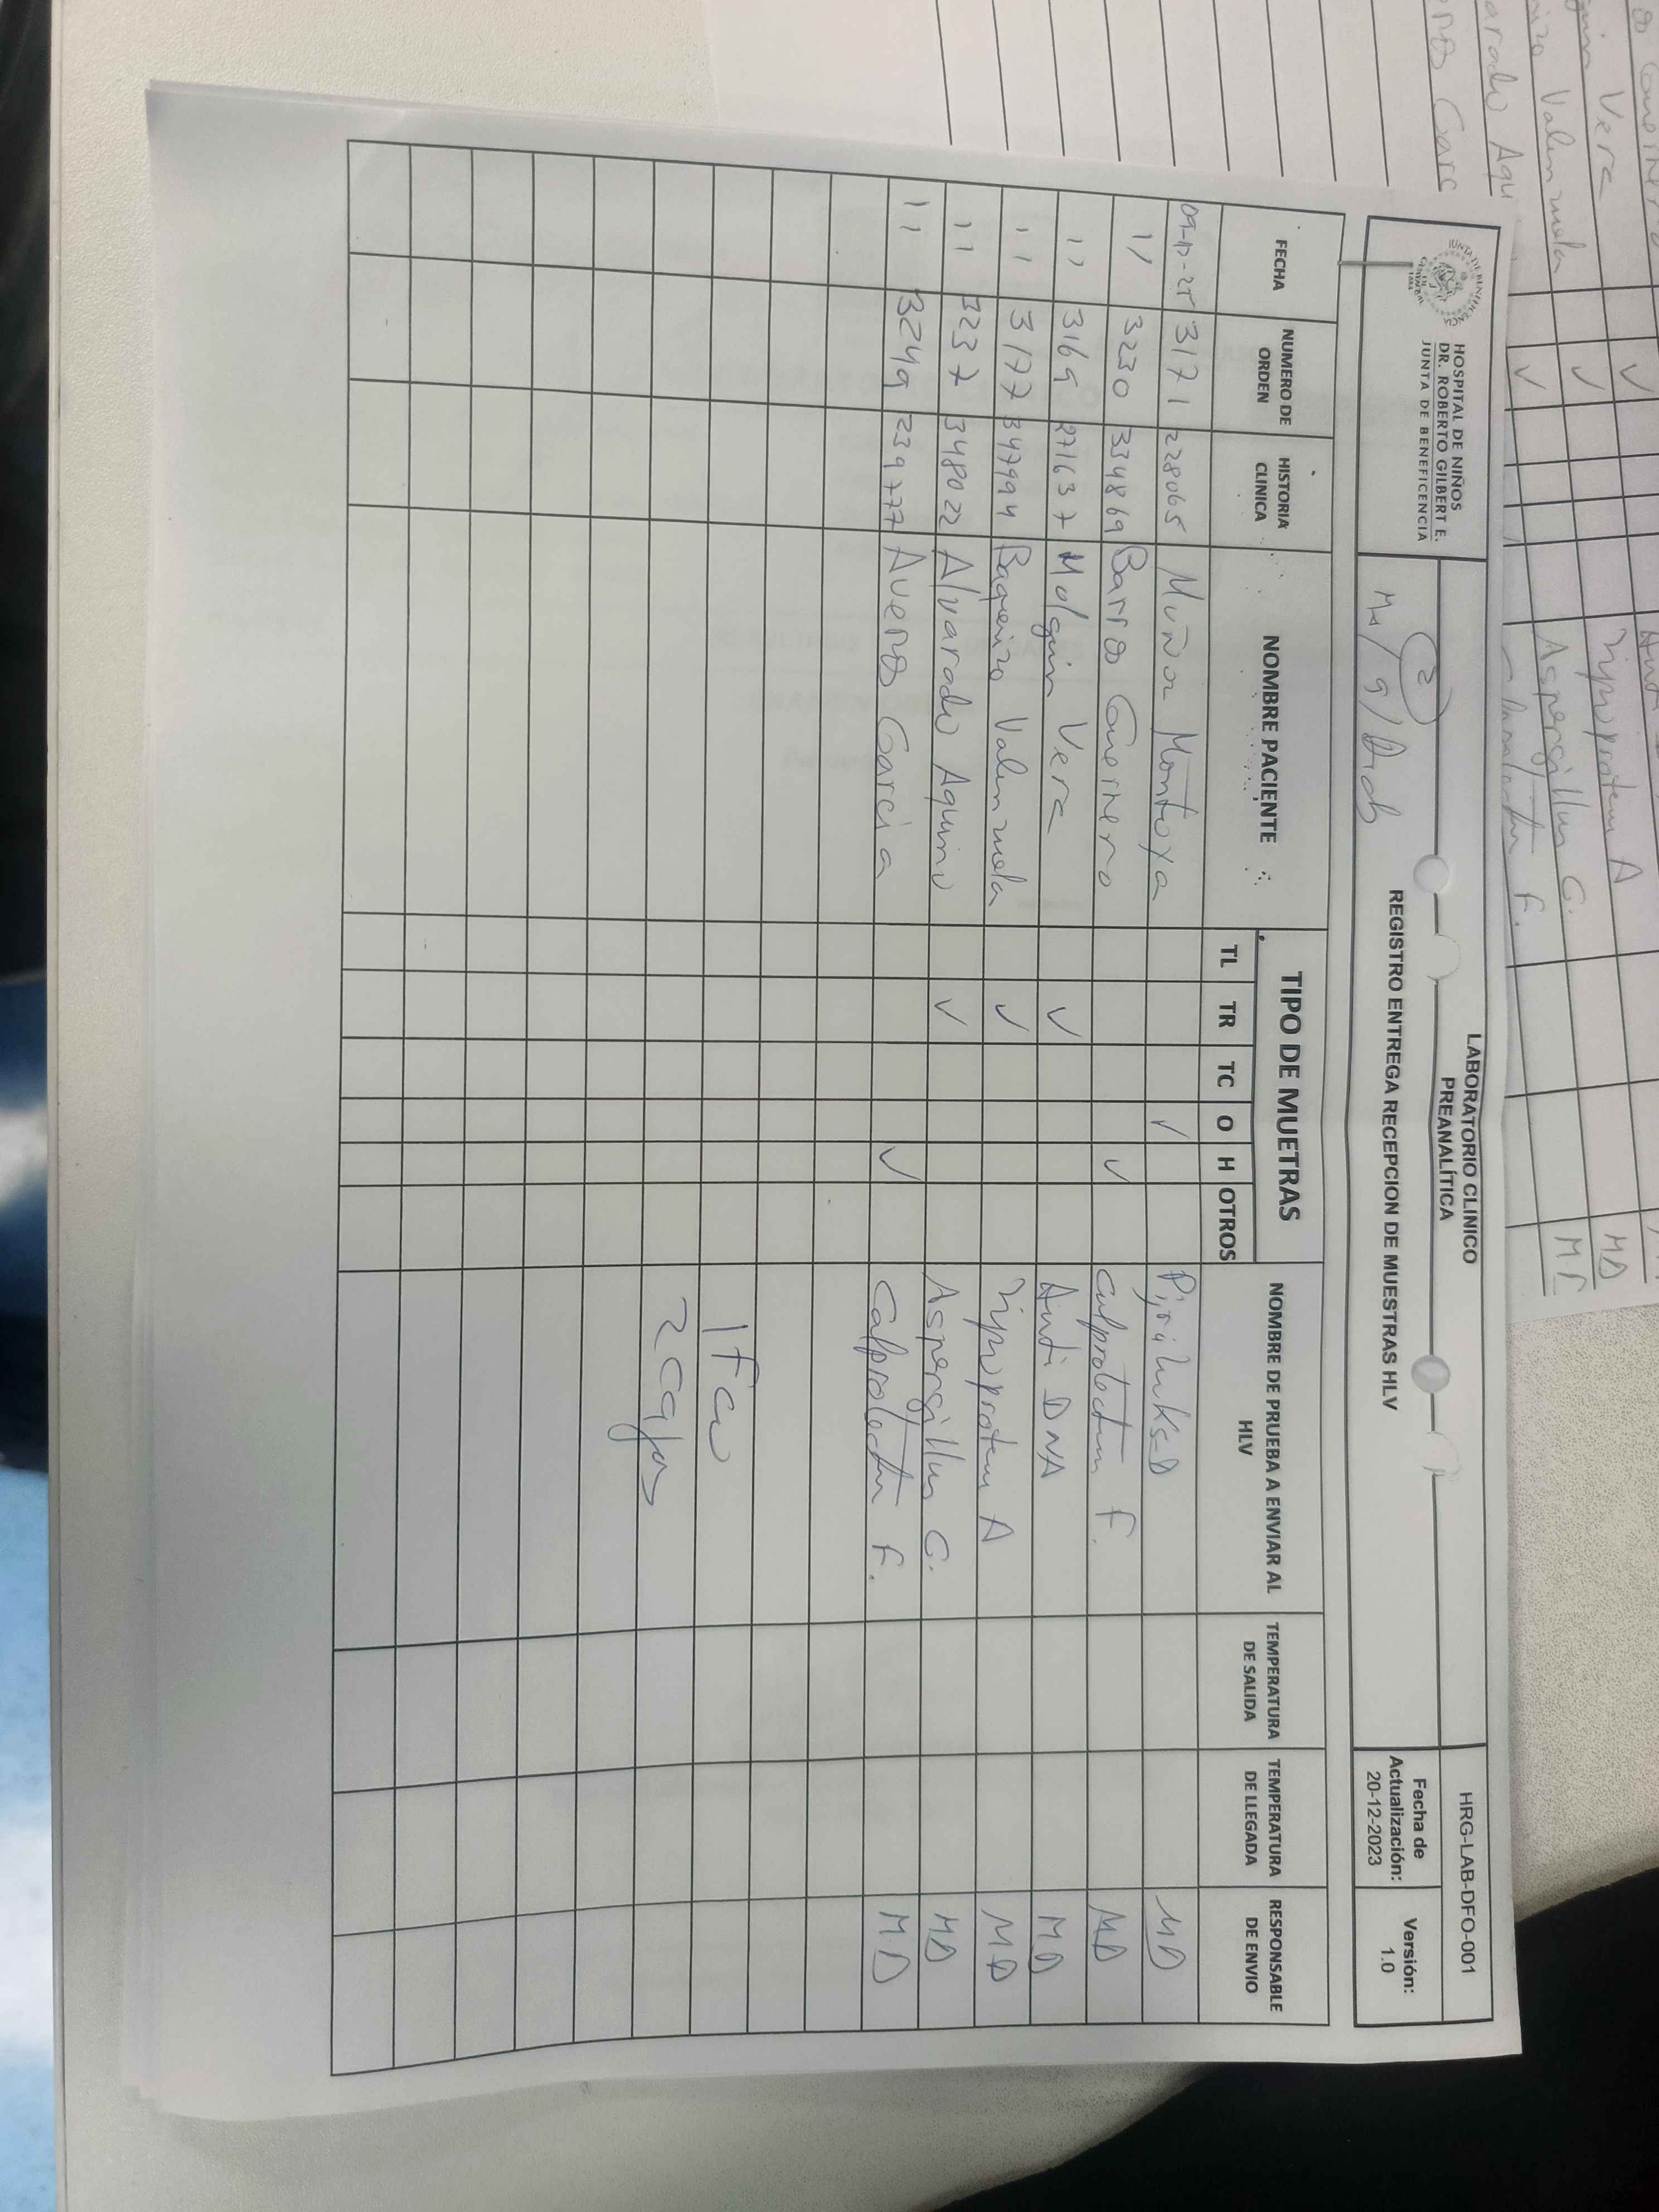 HOSPITAL DE NIÑOS
DR. ROBERTO GILBERT E.
JUNTA DE BENEFICENCIA
LABORATORIO CLINICO
PREANALÍTICA
REGISTRO ENTREGA RECEPCION DE MUESTRAS HLV
HRG-LAB-DFO-001
Fecha de
Actualización:
20-12-2023
Versión:
1.0
2
FECHA NUMERO DE ORDEN HISTORIA CLINICA NOMBRE PACIENTE TIPO DE MUETRAS NOMBRE DE PRUEBA A ENVIAR AL HLV TEMPERATURA DE SALIDA TEMPERATURA DE LLEGADA RESPONSABLE DE ENVIO
TL TR TC O H OTROS
3171 228065 Muñoz Montoya ✓ MD
11 3230 334869 Barros Guerrero ✓ Calprotectin F. MD
11 3169 271637 Holguin Vera ✓ Anti DNA MD
11 3177 347994 Baquerizo Valenzuela ✓ A MD
11 3237 348022 Alvarado Aquino ✓ Aspergillus G. MD
11 3249 239777 Averos Garcia ✓ Calprotectin F. MD
1 Fco
2 cajas
Vera
Valenzuela
arado Aqu
eros Garc
✓
✓
✓
A
Aspergillus G.
F.
MD